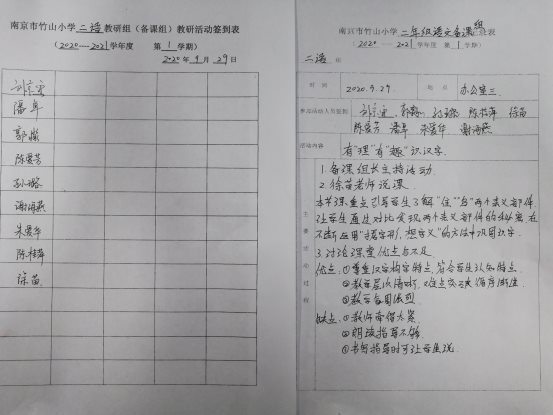 南京市竹山小学二语教研组（备课组）教研活动签到表
（2020---2021学年度 第1学期）
2020年9月29日
潘阜
郭巍
陈爱芳
孙璐
谢海燕
朱爱华
陈桂萍
徐苗
南京市竹山小学二年级语文备课组表
（2020---2021学年度 第1学期）
二语组
时间 2020.9.29 地点 办公室三
参加活动人员签到 郭巍 孙璐 陈桂萍 徐苗
陈爱芳 潘阜 朱爱华 谢海燕
活动内容 有"理"有"趣"识汉字
主要活动过程
1.备课组长主持活动
2.徐苗老师说课
本节课重点引导学生了解"隹""鸟"两个表义部件
让学生通过对比发现两个表义部件的秘密，在
不断运用"猜字形，想字义"的方法中巩固汉字。
3.讨论课堂优点与不足
优点：①尊重汉字构字特点，符合学生认知特点
②教学层次清晰，难点突破循序渐进
③教学氛围浓烈
缺点：①教师牵得太累
②朗读指导不够
③书写指导时可让学生说